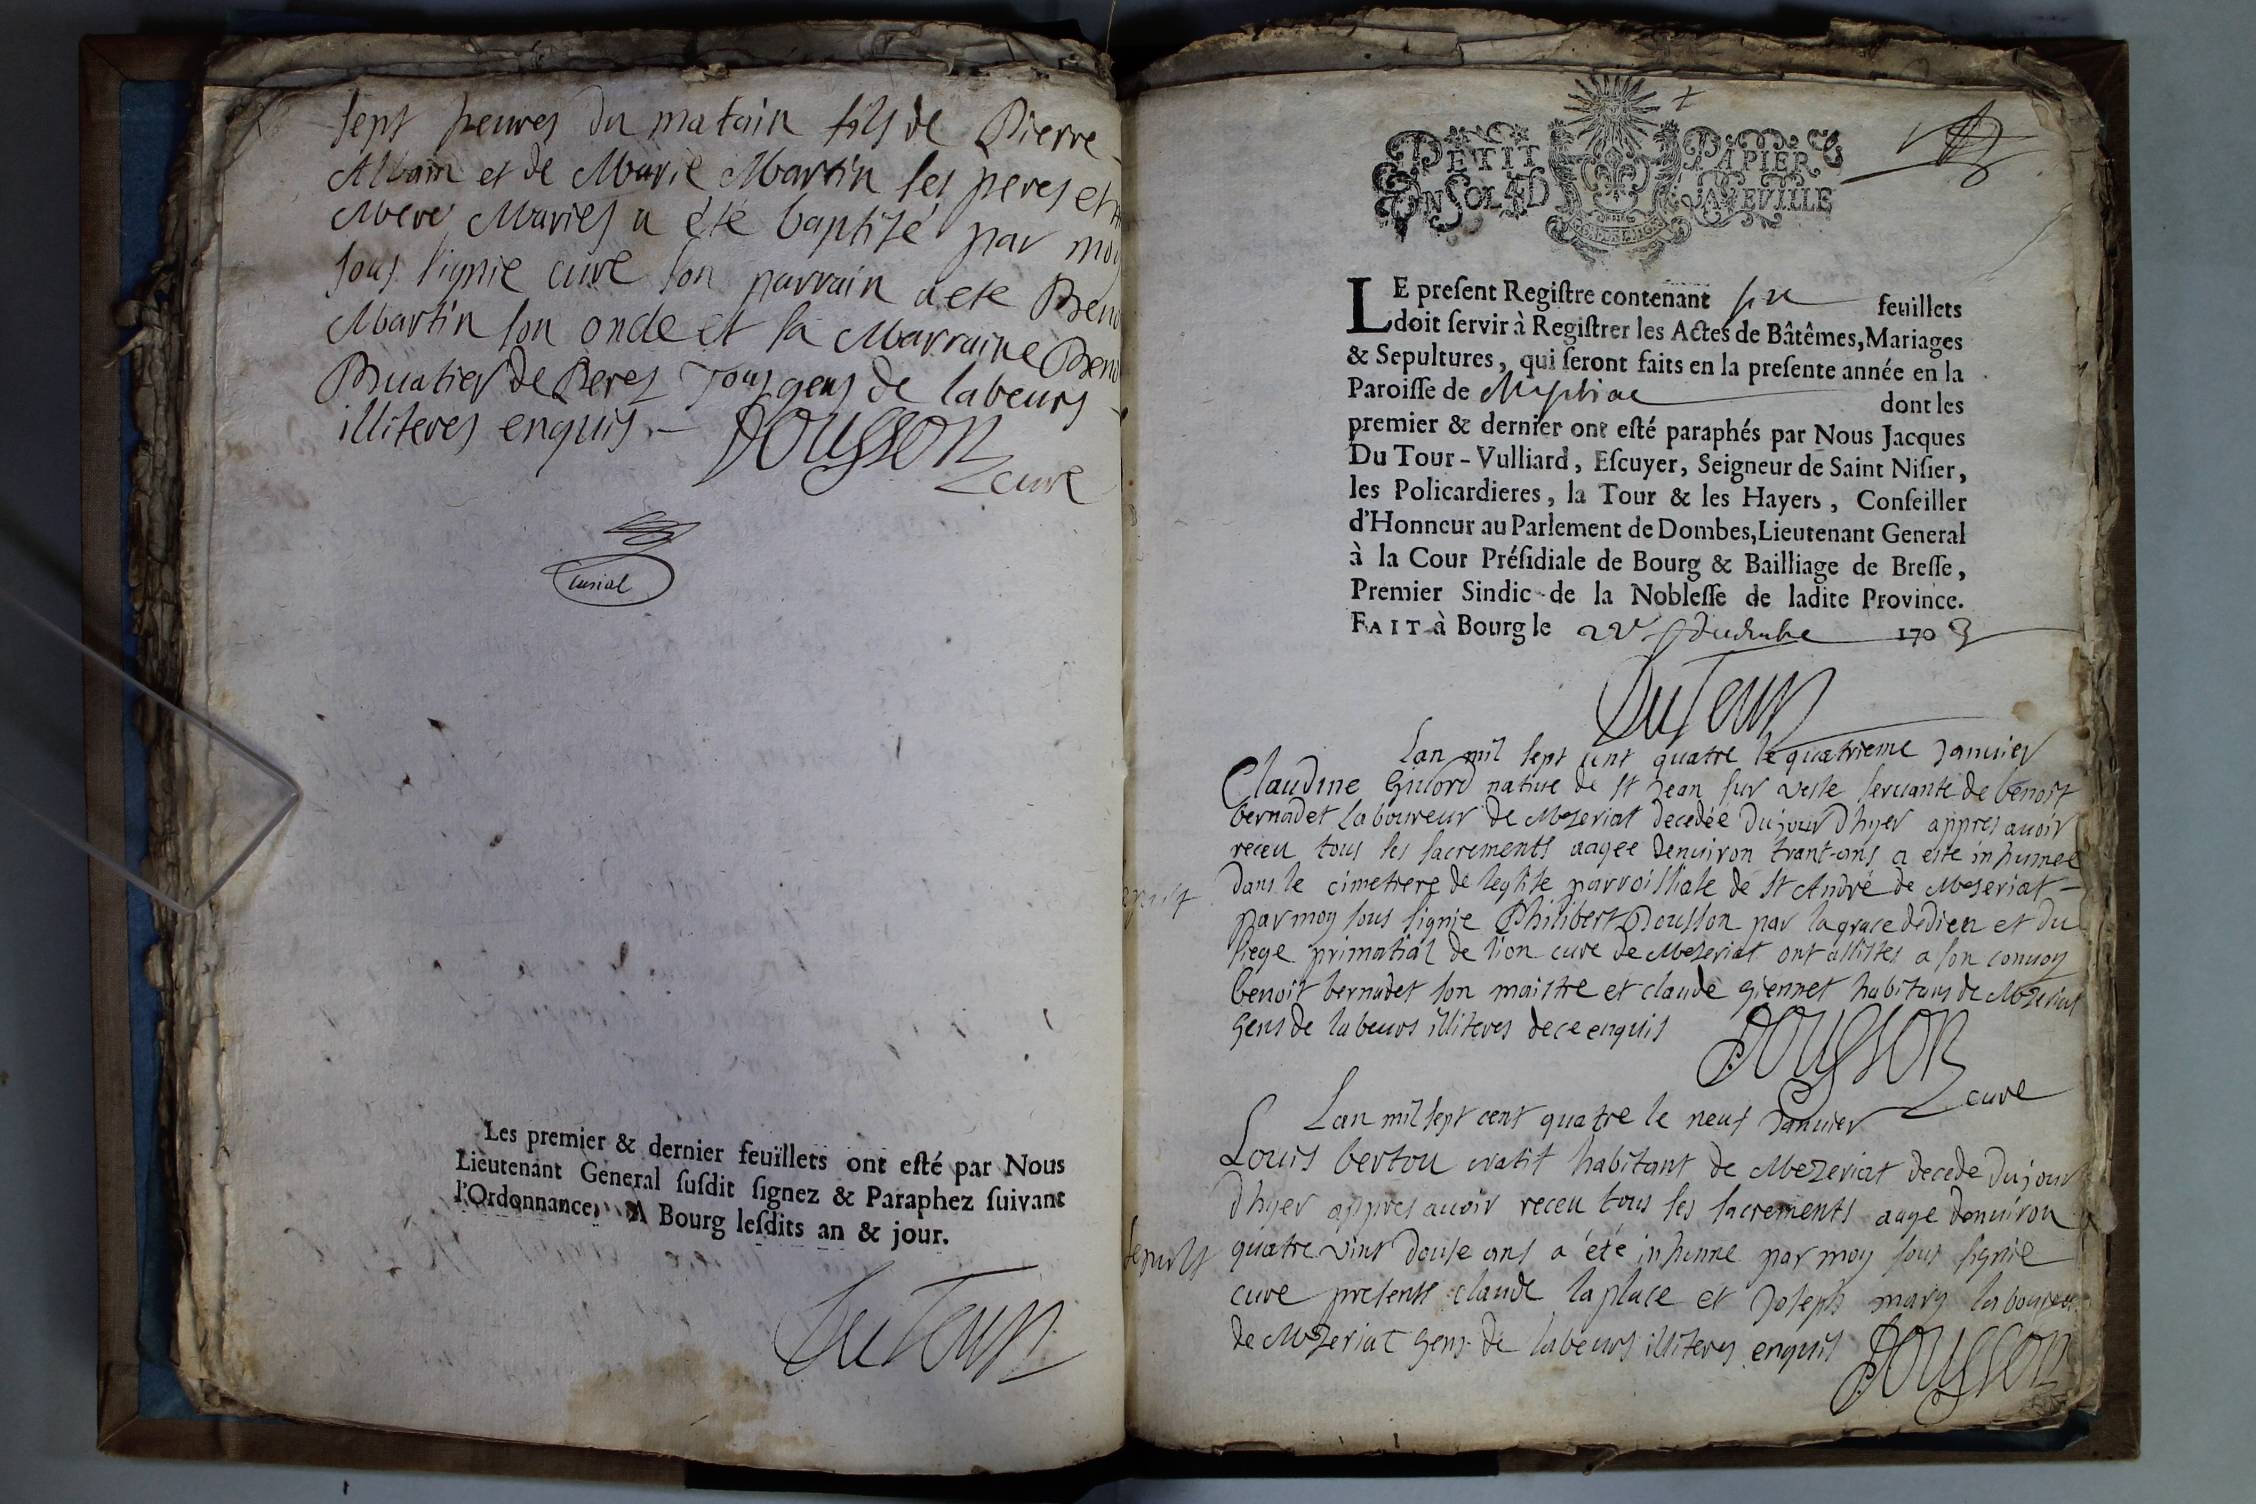 sept heures du matain fils de Pierre
Albain et de Marie Martin ses peres et
Mere Maries a été baptizé par moy
sous signie curé son parrain a ete Beno
Martin son oncle et sa Marraine Beno
Buatier de Peres Tous gens de labeurs
illiteres enquis.
Dousson
cure
curial
Les premier & dernier feuïllets ont esté par Nous
Lieutenant General susdit signez & Paraphez suivant
l'Ordonnance, A Bourg lesdits an & jour.
Du Tour
PETIT PAPIER
UN SOL 4 D LA FEUILLE
LE present Registre contenant six feuillets
doit servir à Registrer les Actes de Bâtêmes, Mariages
& Sepultures, qui seront faits en la presente année en la
Paroisse de dont les
premier & dernier ont esté paraphés par Nous Jacques
Du Tour-Vulliard, Escuyer, Seigneur de Saint Nisier,
les Policardieres, la Tour & les Hayers, Conseiller
d'Honneur au Parlement de Dombes, Lieutenant General
à la Cour Présidiale de Bourg & Bailliage de Bresse,
Premier Sindic de la Noblesse de ladite Province.
FAIT à Bourg le 1703
Du Tour
Lan mil sept cent quatre le quatrieme Janvier
Claudine native de st Jean sur vesle servante de benoist
bernadet laboureur de Mezeriat decedée du jour dhyer appres avoir
receu tous les sacrements aagee denviron trant-ans a este inhumee
dans le cimetiere de leglise parroissiale de St André de Meseriat
par moy sous signie Philibert Dousson par la grace de dieu et du
siege primatial de lion cure de Mezeriat ont assistes a son convoy
benoit bernadet son maistre et claude giennet habitans de Mezeriat
gens de labeurs illiteres de ce enquis
Dousson
cure
Lan mil sept cent quatre le neuf Janvier
Louis bertou natif habitant de Mezeriat decede du jour
dhyer appres avoir receu tous les sacrements aage denviron
sepult quatre vint douse ans a été inhume par moy sous signie
cure presents claude laplace et Joseph mary laboureur
de Mezeriat gens de labeurs illiteres enquis
Dousson